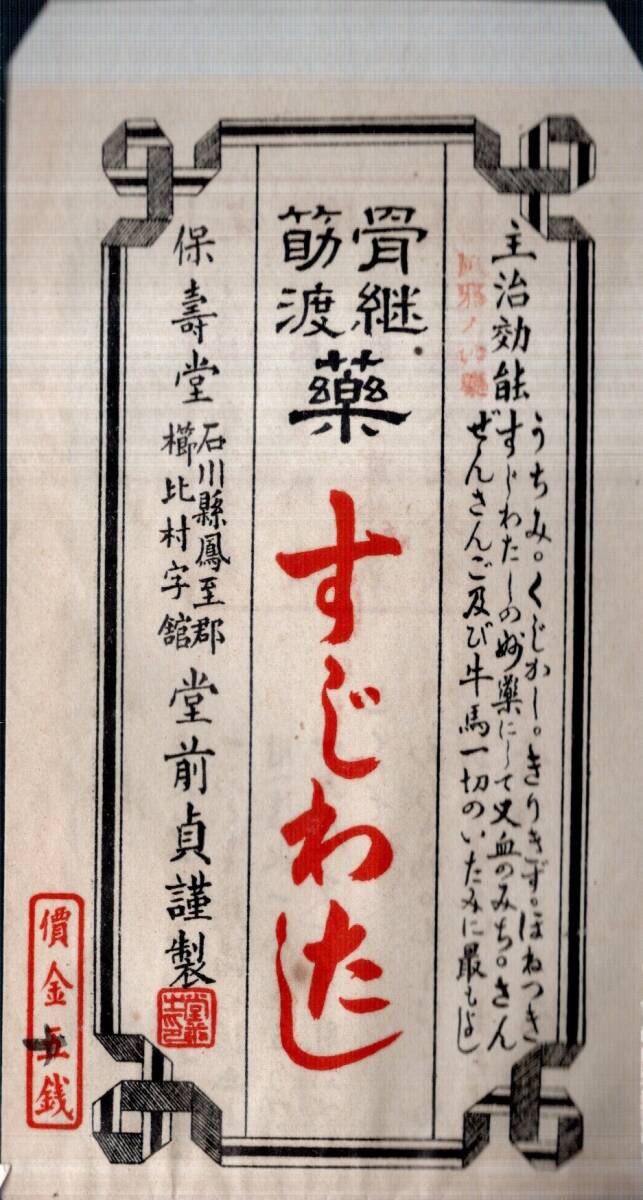 主治効能
うちみ。くじかし。きりきず。ほねつき
すじわたしの妙藥にして又血のみち。さん
ぜんさんご及び牛馬一切のいたみに最もよし
骨継
筋渡
藥
すじわたし
保壽堂
石川縣鳳至郡
櫛比村字舘
堂前貞謹製
價金五銭